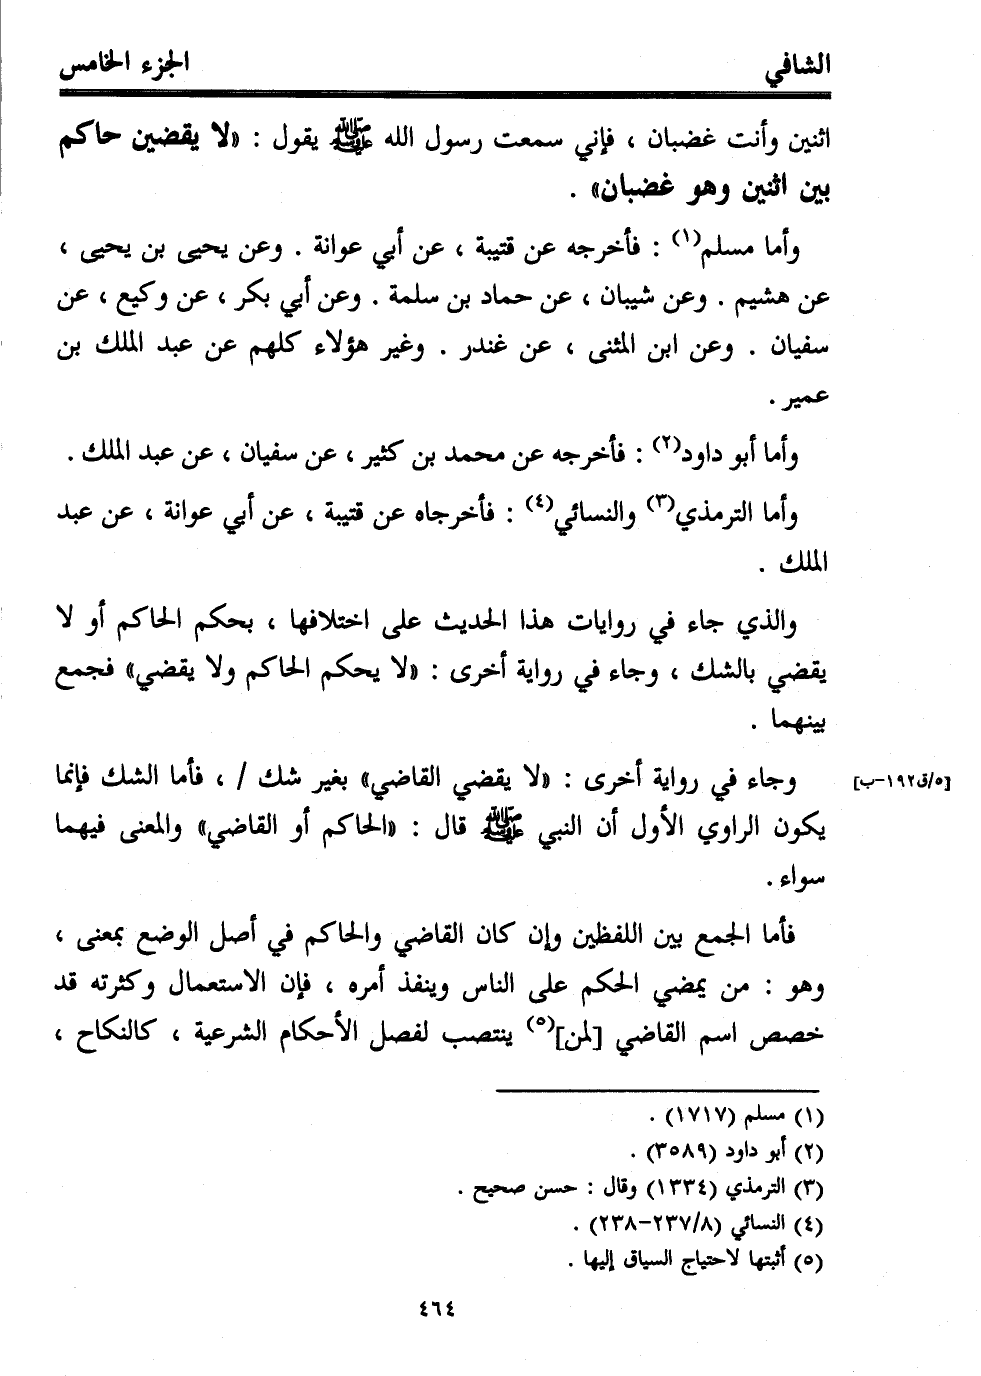 الشافي
الجزء الخامس
اثنين وأنت غضبان ، فإني سمعت رسول الله ﷺ يقول : «لا يقضين حاكم
بين اثنين وهو غضبان» .
وأما مسلم(١) : فأخرجه عن قتيبة ، عن أبي عوانة . وعن يحيى بن يحيى ،
عن هشيم . وعن شيبان ، عن حماد بن سلمة . وعن أبي بكر ، عن وكيع ، عن
سفيان . وعن ابن المثنى ، عن غندر . وغير هؤلاء كلهم عن عبد الملك بن
عمير .
وأما أبو داود(٢) : فأخرجه عن محمد بن كثير ، عن سفيان ، عن عبد الملك .
وأما الترمذي(٣) والنسائي(٤) : فأخرجاه عن قتيبة ، عن أبي عوانة ، عن عبد
الملك .
والذي جاء في روايات هذا الحديث على اختلافها ، بحكم الحاكم أو لا
يقضي بالشك ، وجاء في رواية أخرى : «لا يحكم الحاكم ولا يقضي» فجمع
بينهما .
وجاء في رواية أخرى : «لا يقضي القاضي» بغير شك / ، فأما الشك فإنما
[٥/ق١٩٢-ب]
يكون الراوي الأول أن النبي ﷺ قال : «الحاكم أو القاضي» والمعنى فيهما
سواء .
فأما الجمع بين اللفظين وإن كان القاضي والحاكم في أصل الوضع بمعنى ،
وهو : من يمضي الحكم على الناس وينفذ أمره ، فإن الاستعمال وكثرته قد
خصص اسم القاضي [لمن](٥) ينتصب لفصل الأحكام الشرعية ، كالنكاح ،
(١) مسلم (١٧١٧) .
(٢) أبو داود (٣٥٨٩) .
(٣) الترمذي (١٣٣٤) وقال : حسن صحيح .
(٤) النسائي (٨/٢٣٧-٢٣٨) .
(٥) أثبتها لاحتياج السياق إليها .
٤٦٤